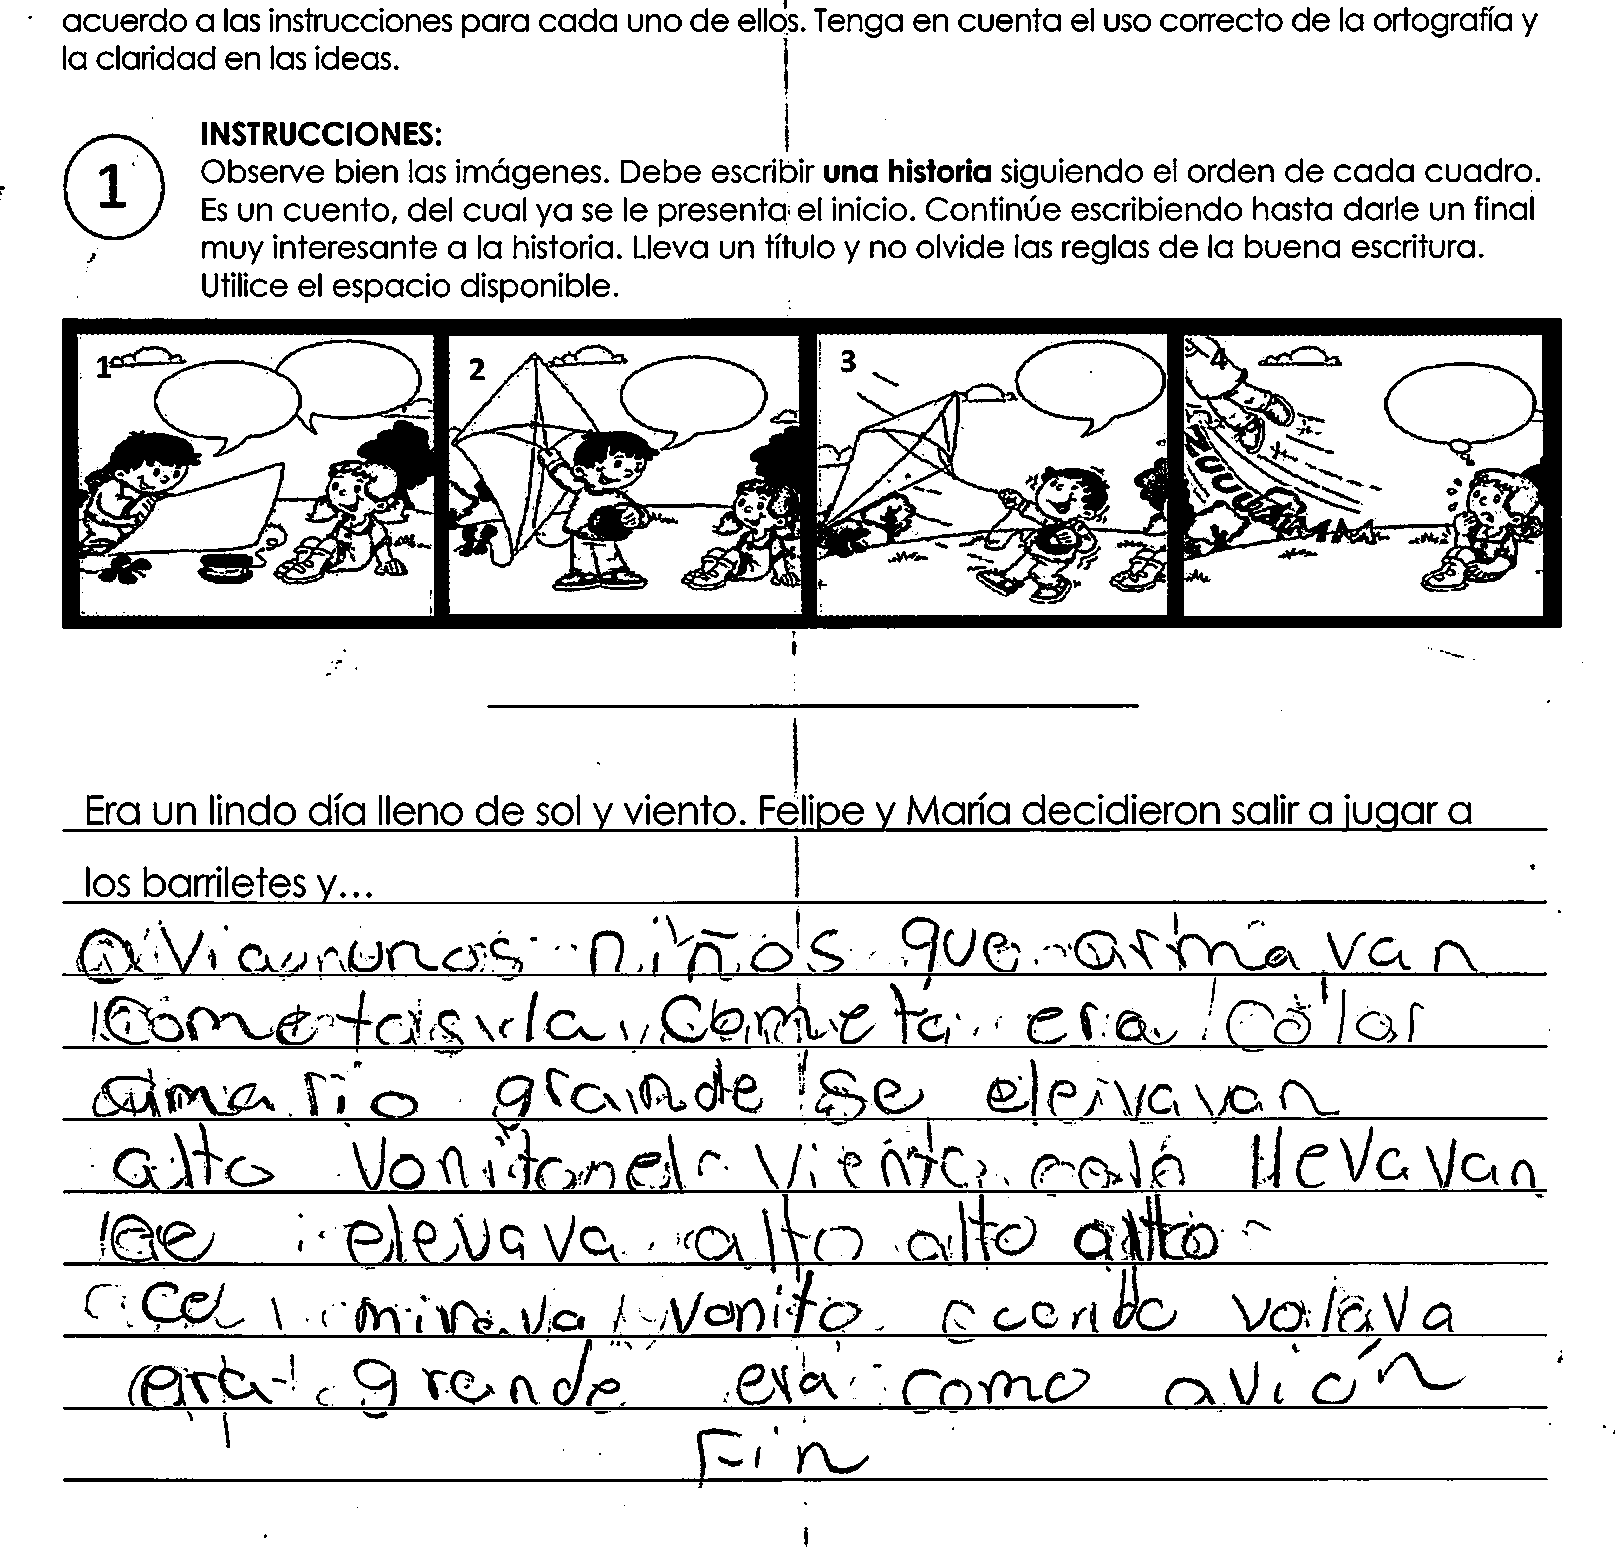 acuerdo a las instrucciones para cada uno de ellos. Tenga en cuenta el uso correcto de la ortografía y
la claridad en las ideas.
1
INSTRUCCIONES:
Observe bien las imágenes. Debe escribir una historia siguiendo el orden de cada cuadro.
Es un cuento, del cual ya se le presenta el inicio. Continúe escribiendo hasta darle un final
muy interesante a la historia. Lleva un título y no olvide las reglas de la buena escritura.
Utilice el espacio disponible.
1 2 3 4
Era un lindo día lleno de sol y viento. Felipe y María decidieron salir a jugar a
los barriletes y...
aviaunos niños que armavan
cometas la cometa era color
amario grande se eleivavan
alto vonitonel viento llevavan
se elevava alto alto alto
minava vonito cuendo volava
era grande era como avión
Fin